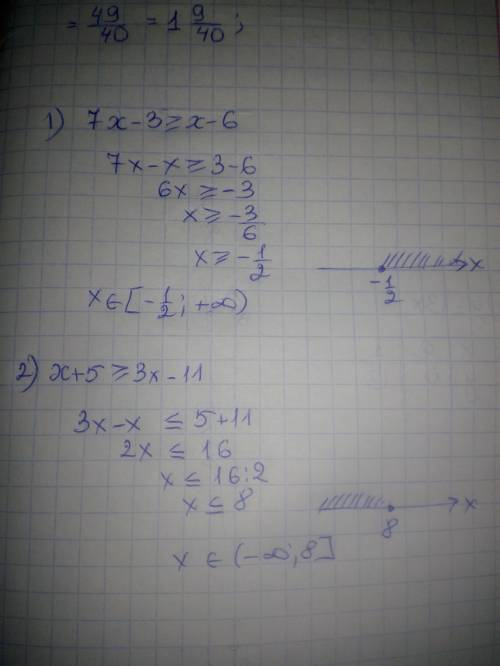 = 49/40 = 1 9/40 ;
1) 7x-3≥x-6
7x-x≥3-6
6x≥-3
x≥-3/6
x≥-1/2
-1/2 x
x∈[-1/2; +∞)
2) x+5≥3x-11
3x-x ≤ 5+11
2x ≤ 16
x ≤ 16:2
x ≤ 8
8 x
x ∈ (-∞; 8]